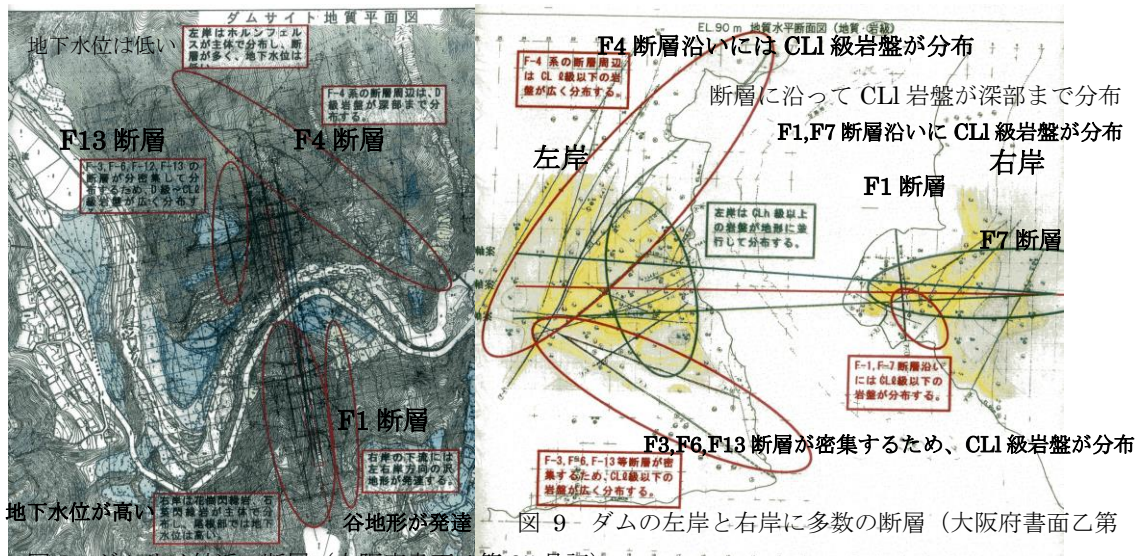 ダムサイト地質平面図
地下水位は低い
左岸はホルンフェル
スが主体で分布し、断
層が多く、地下水位は
F-4系の断層周辺は、D
級岩盤が深部まで分
布する。
F13 断層
F4 断層
F-3,F-6,F-12,F-13の
断層が分密集して分
布するため、D級~CLℓ
級岩盤が広く分布す
F1 断層
右岸の下流には
左右岸方向の沢
地形が発達する。
右岸は花崗閃緑岩、石
英閃緑岩が主体で分
布し、尾根部では地下
水位は高い。
地下水位が高い
谷地形が発達
EL.90 m 地質水平断面図（地質・岩級）
F4 断層沿いには CLl 級岩盤が分布
F-4 系の断層周辺
は CLℓ級以下の岩
盤が広く分布する。
断層に沿って CLl 岩盤が深部まで分布
F1,F7 断層沿いに CLl 級岩盤が分布
左岸
右岸
F1 断層
左岸は CLh 級以上
の岩盤が地形に並
行して分布する。
F7 断層
軸案
軸案
F-1,F-7断層沿い
にはCLℓ級以下の
岩盤が分布する。
F3,F6,F13 断層が密集するため、CLl 級岩盤が分布
F-3,F-6,F-13等断層が密
集するため、CLℓ級以下の
岩盤が広く分布する。
図 9 ダムの左岸と右岸に多数の断層（大阪府書面乙第